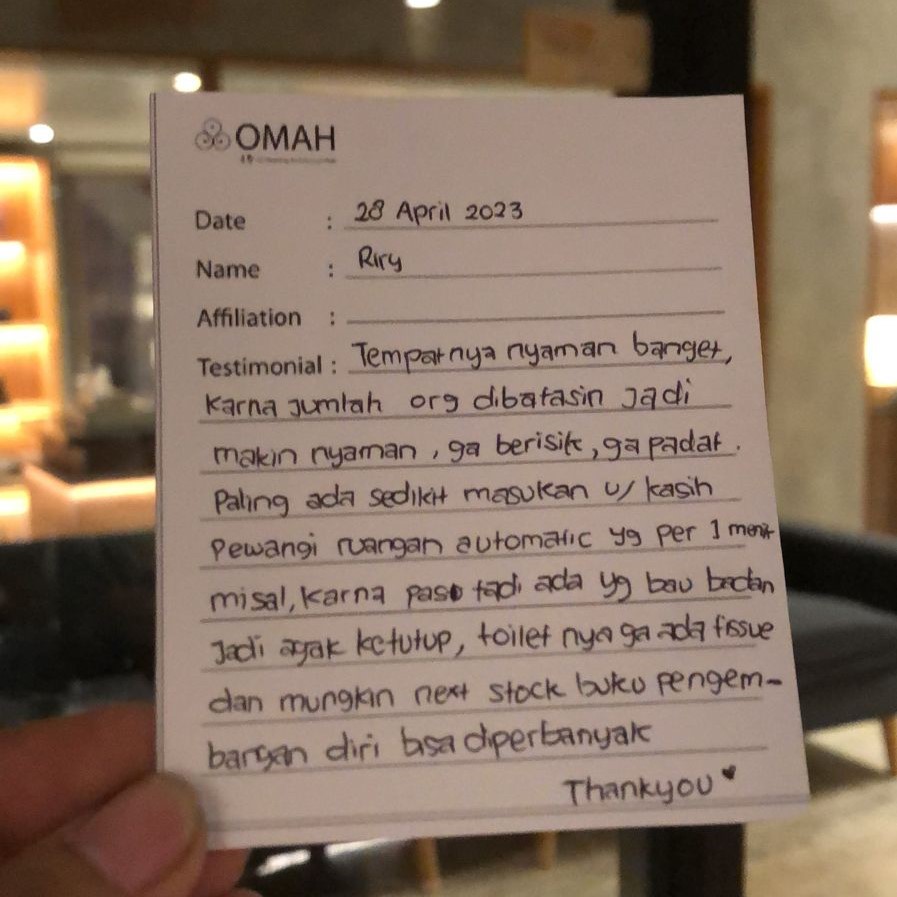 OMAH
Date : 28 April 2023
Name : Riry
Affiliation :
Testimonial : Tempatnya nyaman banget,
karna jumlah org dibatasin jadi
makin nyaman, ga berisik, ga padat.
Paling ada sedikit masukan u/ kasih
pewangi ruangan automatic yg per 1 menit
misal, karna pas tadi ada yg bau badan
jadi agak ketutup, toilet nya ga ada tissue
dan mungkin next stock buku pengem-
bangan diri bisa diperbanyak
Thankyou ♥